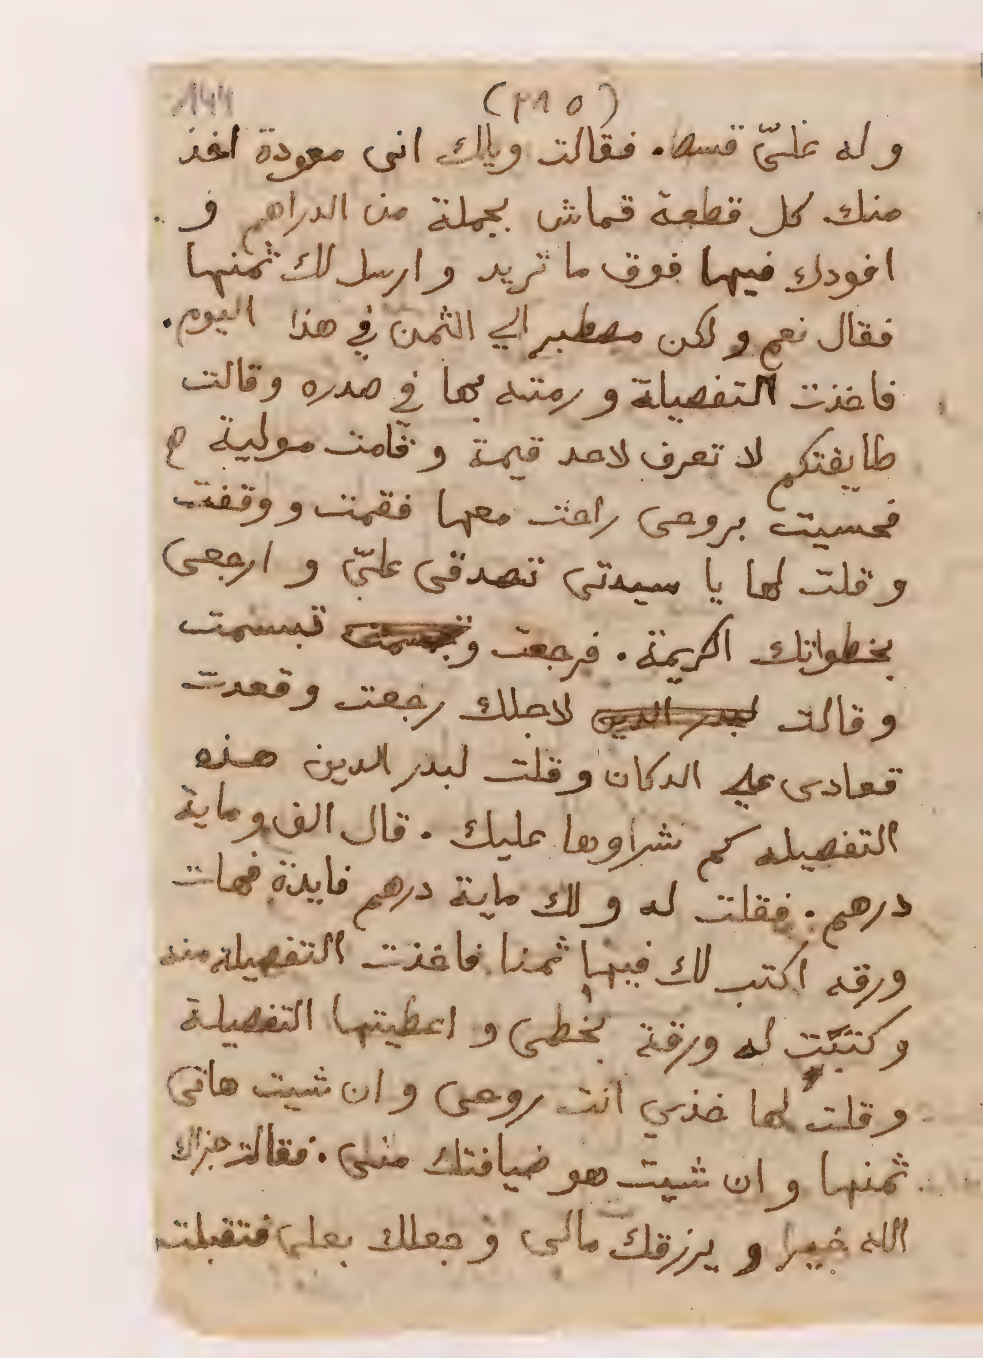 ١٤٤ (٢٨٥)
وله عليّ قسط. فقالت ويلك اني معودة اخذ
منك كل قطعة قماش بجملة من الدراهم و
افودك فيها فوق ما تريد و ارسل لك ثمنها
فقال نعم و لكن مضطر الي الثمن في هذا اليوم.
فاخذت التفصيلة و رمته بها في صدره وقالت
طايفتكم لا تعرف لاحد قيمة و قامت مولية
فحسيت بروحي راحت معها فقمت و وقفت
و قلت لها يا سيدتي تصدقي عليّ و ارجعي
بخطواتك الكريمة. فرجعت و تبسمت
و قالت لبدر الدين لاجلك رجعت و قعدت
قعادي علي الدكان و قلت لبدر الدين هذه
التفصيله كم شراوها عليك. قال الف و ماية
درهم. فقلت له و لك ماية درهم فايدة فهات
ورقه اكتب لك فيها ثمنا فاخذت التفصيلة منه
و كتبت له ورقة بخطي و اعطيتها التفصيلة
و قلت لها خذي انت روحي و ان شيت هاتي
ثمنها و ان شيت هو ضيافتك مني. فقالت جزاك
الله خيرا و يرزقك مالي و جعلك بعلي فتقبلت